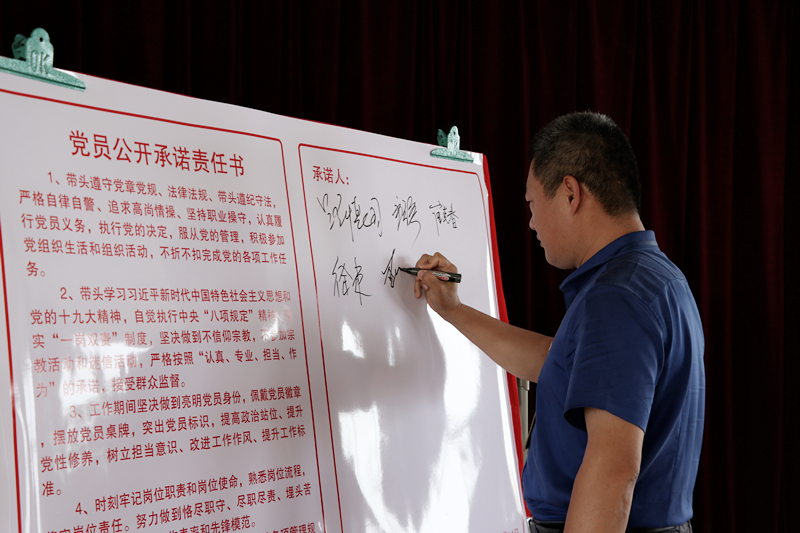 OK
党员公开承诺责任书
1、带头遵守党章党规、法律法规、带头遵纪守法,
严格自律自警、追求高尚情操、坚持职业操守,认真履
行党员义务,执行党的决定,服从党的管理,积极参加
党组织生活和组织活动,不折不扣完成党的各项工作任
务。
2、带头学习习近平新时代中国特色社会主义思想和
党的十九大精神,自觉执行中央“八项规定”精神,
实“一岗双责”制度,坚决做到不信仰宗教、不参加宗
教活动和迷信活动,严格按照“认真、专业、担当、作
为”的承诺,接受群众监督。
3、工作期间坚决做到亮明党员身份,佩戴党员徽章
,摆放党员桌牌,突出党员标识,提高政治站位、提升
党性修养,树立担当意识、改进工作作风、提升工作标
准。
4、时刻牢记岗位职责和岗位使命,熟悉岗位流程,
岗位责任。努力做到恪尽职守、尽职尽责、埋头苦
表率和先锋模范。
各项管理规
承诺人: